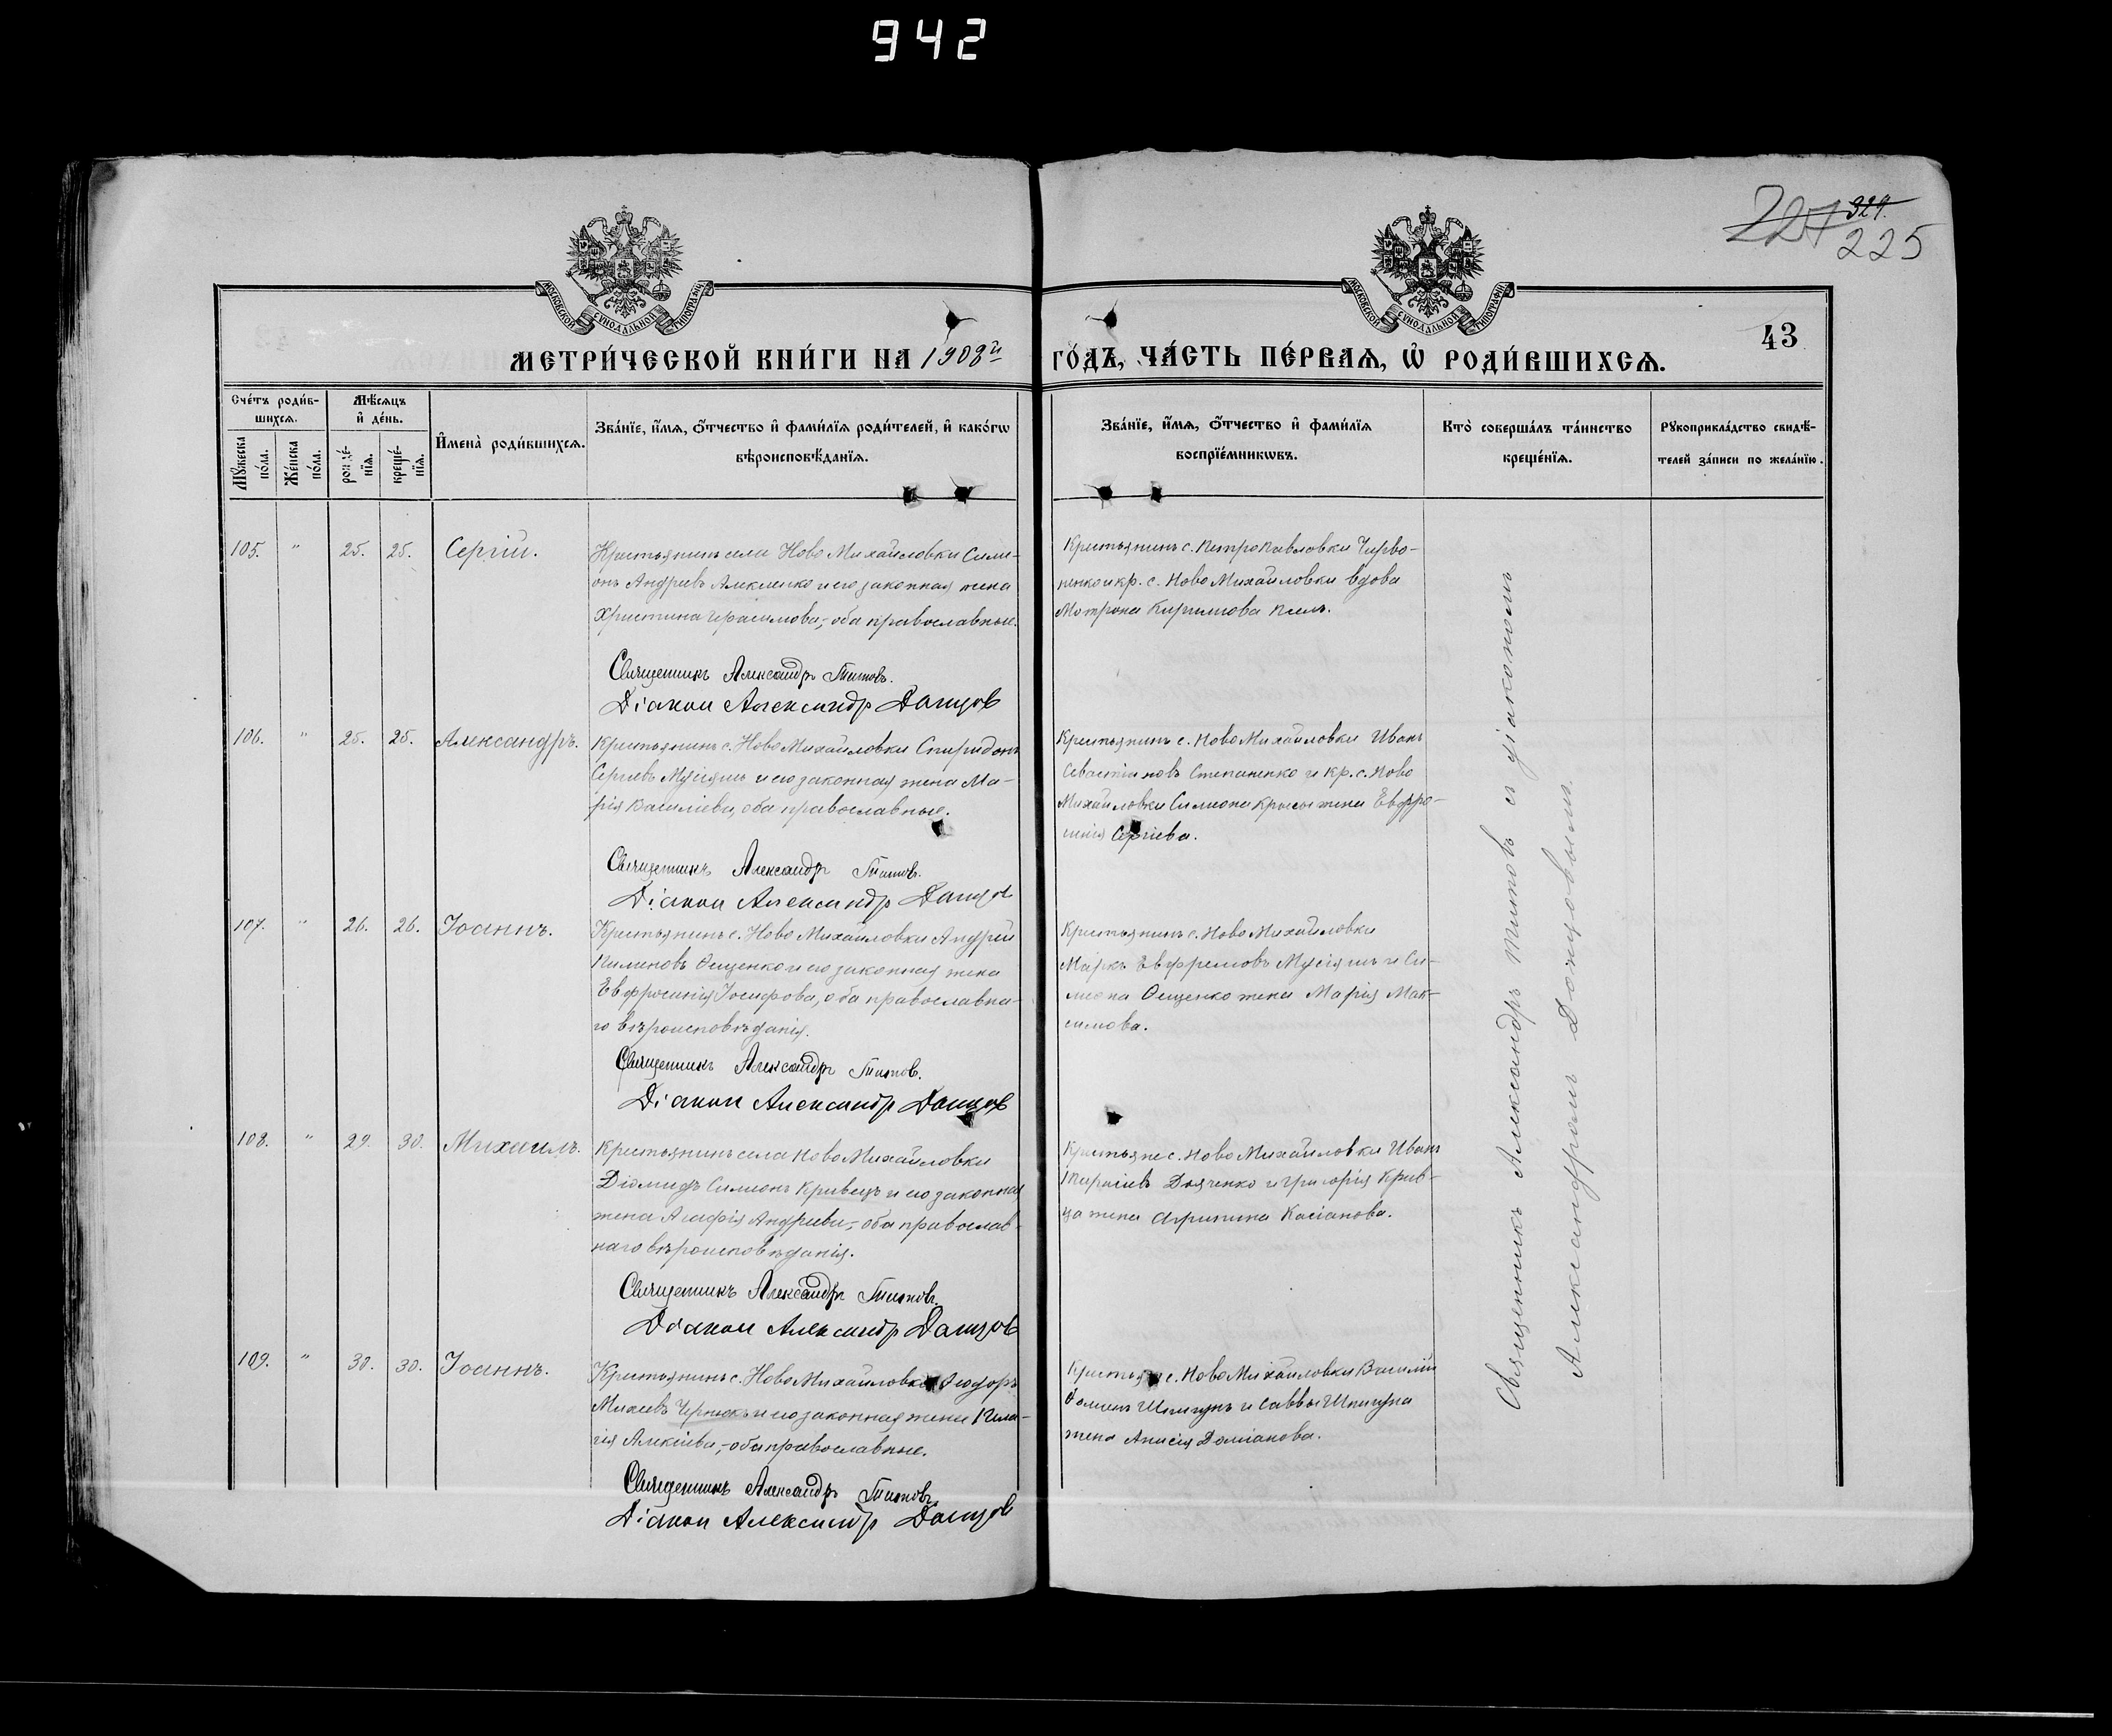 942
227 321.
225
МОСКОВСКОЙ СѴНОДАЛЬНОЙ ТИПОГРАФІИ
МОСКОВСКОЙ СѴНОДАЛЬНОЙ ТИПОГРАФІИ
43
МЕТРИ́ЧЕСКОЙ КНИ́ГИ НА 1908й ГО́ДЪ, ЧА́СТЬ ПЕ́РВАЯ, Ѡ҆ РОДИ́ВШИХСЯ.
Сче́тъ роди́в-
шихся.
Мꙋжеска по́ла.
Же́нска по́ла.
Мѣ́сяцъ
и҆ де́нь.
рожде́-
нїя.
креще́-
нїя.
И҆мена̀ роди́вшихся.
Зва́нїе, и҆́мя, ѻ҆́тчество и҆ фами́лїя роди́телей, и҆ како́гѡ
вѣроисповѣ́данїя.
Зва́нїе, и҆́мя, ѻ҆́тчество и҆ фами́лїя
воспрїе́мникѡвъ.
Кто̀ соверша́лъ та́инство
креще́нїя.
Рꙋкоприкла́дство свидѣ́-
телей за́писи по жела́нїю.
105. " 25. 25. Сергій.
Крестьянинъ села Ново Михайловки Симе-
онъ Андреевъ Алексенко и его законная жена
Христина Герасимова,- оба православные.
Священникъ Александръ Титовъ.
Діакон Александр Донцов
Крестьянинъ с. Петропавловки Черво-
ненко и кр. с. Ново Михайловки вдова
Мотрона Кириллова
106. " 25. 25. Александръ.
Крестьянинъ с. Ново Михайловки Спиридонъ
Сергіевъ Мусіяшъ и его законная жена Ма-
рія Василіева, оба православные.
Священникъ Александръ Титовъ.
Діакон Александр Донцов
Крестьянинъ с. Ново Михайловки Иванъ
Севастіановъ Степаненко и кр. с. Ново
Михайловки Симеона Крысы жена Евфро-
синія Сергіева.
107. " 26. 26. Іоаннъ.
Крестьянинъ с. Ново Михайловки Андрей
Пименовъ Ощенко и его законная жена
Евфросинія Іосифова, оба православна-
го вѣроисповѣданія.
Священникъ Александръ Титовъ.
Діакон Александр Донцов
Крестьянинъ с. Ново Михайловки
Маркъ Евфремовъ Мусіяшъ и Си-
меона Ощенко жена Марія Мак-
симова.
108. " 29. 30. Михаилъ.
Крестьянинъ села Ново Михайловки
Діомидъ Симеонъ Кривецъ и его законная
жена Агафія Андреева,- оба православ-
наго вѣроисповѣданія.
Священникъ Александръ Титовъ.
Діакон Александр Донцов
Крестьяне с. Ново Михайловки Иванъ
Тарасіевъ Дьяченко и Григорія Крив-
ца жена Агрипина Касіанова.
109. " 30. 30. Іоаннъ.
Крестьянинъ с. Ново Михайловки Ѳеодоръ
Михеевъ и его законная жена Пела-
гія Алексіева,- оба православные.
Священникъ Александръ Титовъ.
Діакон Александр Донцов
Крестьяне с. Ново Михайловки Василій
Ѳоминъ Шпигунъ и Саввы Шпигуна
жена Анисія Даміанова.
Священникъ Александръ Титовъ съ діакономъ
Александромъ Донцовымъ.